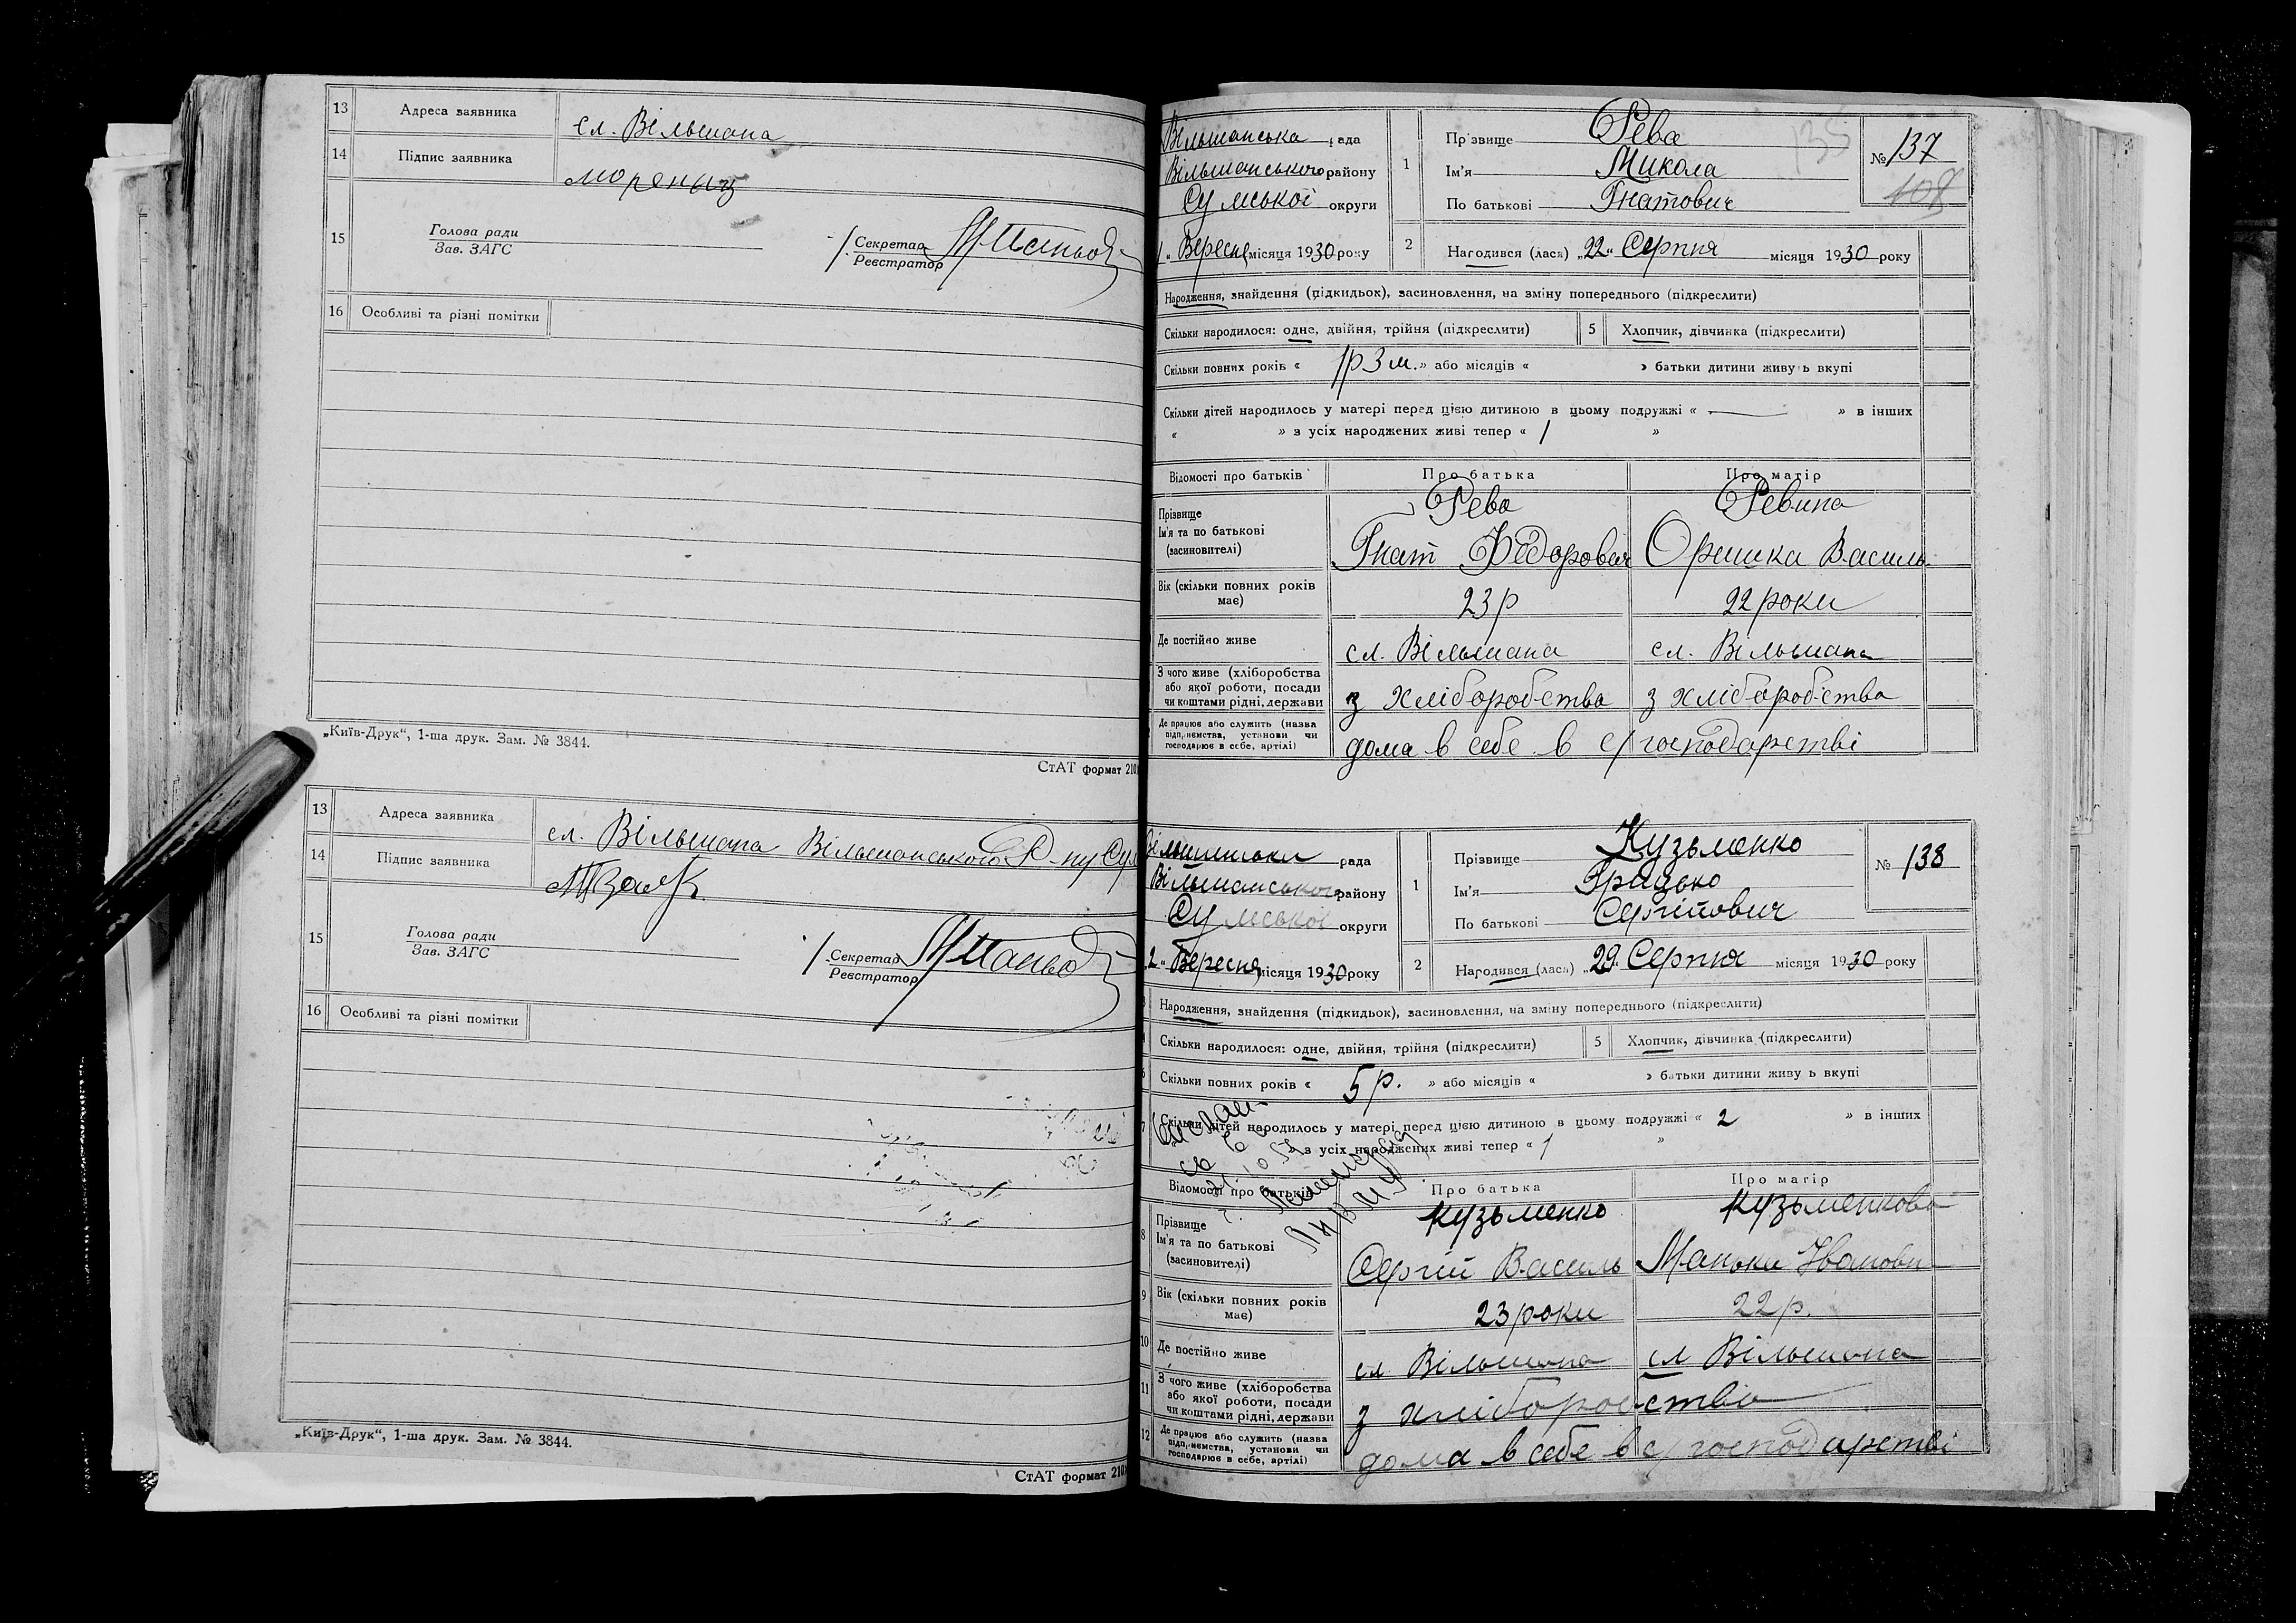 13 Адреса заявника сл. Вільшана
14 Підпис заявника
15 Голова ради
Зав. ЗАГС
Секретар
Реєстратор
16 Особливі та різні помітки
„Київ-Друк“, 1-ша друк. Зам. № 3844.
СтАТ формат 210
13 Адреса заявника сл. Вільшана Вільшанського Р-ну Сум
14 Підпис заявника
15 Голова ради
Зав. ЗАГС
Секретар
Реєстратор
16 Особливі та різні помітки
„Київ-Друк“, 1-ша друк. Зам. № 3844.
СтАТ формат 210
Вільшанська рада
Вільшанського району
Сумської округи
1 „ Вересня місяця 1930 року
1 Прізвище Рева
Ім'я Микола
По батькові Гнатович
135
№ 137
108
2 Народився (лася) „22“ Серпня місяця 1930 року
Народження, знайдення (підкидьок), засиновлення, на зміну попереднього (підкреслити)
Скільки народилося: одне, двійня, трійня (підкреслити) 5 Хлопчик, дівчинка (підкреслити)
Скільки повних років « 1р 3 м. » або місяців « » батьки дитини живуть вкупі
Скільки дітей народилось у матері перед цією дитиною в цьому подружжі « — » в інших
« » з усіх народжених живі тепер « 1 »
Відомості про батьків Про батька Про матір
Прізвище Рева Ревина
Ім'я та по батькові
(засиновителі) Гнат Федорович Оришка Василь
Вік (скільки повних років
має) 23 р 22 роки
Де постійно живе сл. Вільшана сл. Вільшана
З чого живе (хліборобства
або якої роботи, посади
чи коштами рідні, держави з хліборобства з хліборобства
Де працює або служить (назва
підприємства, установи чи
господарює в себе, артілі) дома в себе в с/господарстві
Вільшанська рада
Вільшанського району
Сумської округи
„2“ Вересня місяця 1930 року
1 Прізвище Кузьменко
Ім'я Грицько
По батькові Сергійович
№ 138
2 Народився (лася) „29. Серпня місяця 1930 року
Народження, знайдення (підкидьок), засиновлення, на зміну попереднього (підкреслити)
Скільки народилося: одне, двійня, трійня (підкреслити) 5 Хлопчик, дівчинка (підкреслити)
Скільки повних років « 5 р. » або місяців « » батьки дитини живуть вкупі
7 Скільки дітей народилось у матері перед цією дитиною в цьому подружжі « 2 » в інших
» з усіх народжених живі тепер « 1 »
Відомості про батьків Про батька Про матір
8 Прізвище Кузьменко Кузьменкова
Ім'я та по батькові
(засиновителі) Сергій Василь Манька Івановн
9 Вік (скільки повних років
має) 23 роки 22 р.
10 Де постійно живе сл. Вільшана сл Вільшана
11 З чого живе (хліборобства
або якої роботи, посади
чи коштами рідні, держави з хліборобства
12 Де працює або служить (назва
підприємства, установи чи
господарює в себе, артілі) дома в себе в с/господарстві